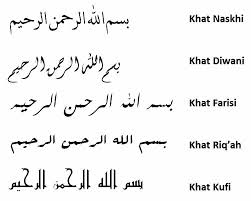 بسم الله الرحمن الرحيم Khat Naskhi
بسم الله الرحمن الرحيم Khat Diwani
بسم الله الرحمن الرحيم Khat Farisi
بسم الله الرحمن الرحيم Khat Riq'ah
بسم الله الرحمن الرحيم Khat Kufi